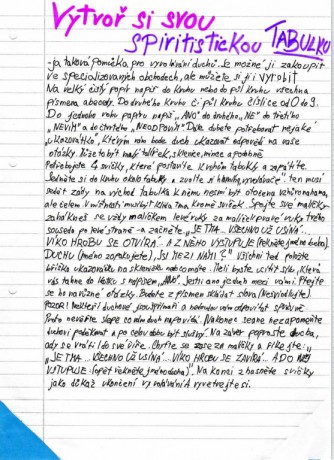 Vytvoř si svou
SPIRITISTICKOU TABULKU
-je taková pomůcka pro vyvolávání duchů. Je možné ji zakoupit
ve specializovaných obchodech, ale můžete si ji i vyrobit
Na velký čistý papír napiš do kruhu nebo do půl kruhu všechna
písmena abecedy. Do druhého kruhu či půl kruhu číslice od 0 do 9.
Do jednoho rohu papíru napiš „ANO" do druhého „NE" do třetího
„NEVÍM" a do čtvrtého „NEODPOVÍM". Dále budete potřebovat nějaké
ukazovátko, kterým vám bude duch ukazovat odpovědi na vaše
otázky. Může to být malý talířek, sklenice, mince a podobně.
Potřebujete 4 svíčky, které postavíte k rohům tabulky a zapálíte.
Sedněte si do kruhu okolo tabulky a zvolte si hlavního vyvolávače, ten musí
sedět zády na východ. Tabulka k němu nesmí být otočena vzhůru nohama,
ale čelem. V místnosti musí být úplná tma, kromě svíček. Spojte své malíčky-
zahákněte se vždy malíčkem levé ruky za malíček pravé ruky svého
souseda po levé straně- a začněte „JE TMA... VŠECHNO UŽ USÍNÁ...
VÍKO HROBU SE OTVÍRÁ... A Z NĚHO VYSTUPUJE (řekněte jméno ducha).
DUCHU (jméno zopakujete), JSI MEZI NÁMI?" Všichni teď položte
bříška ukazováku na sklenici nebo minci. Měli byste ucítit sílu, která
vás táhne do rohu s nápisem „ANO". Jestli ano je duch mezi vámi. Ptejte
se ho na různé otázky. Budete z písmen skládat slova (Nespěchejte).
POZOR! Někteří duchové jsou
Proto nevěřte slepě co vám duch napovídá. Nakonec seance nezapomeňte
duchovi poděkovat a po celou dobu být slušný. Na závěr poproste ducha,
aby se vrátil do své říše. Chyťte se zase za malíčky a říkejte:
„JE TMA... VŠECHNO UŽ USÍNÁ... VÍKO HROBU SE ZAVÍRÁ... A DO NĚJ
VSTUPUJE (opět řekněte jméno ducha)". Na konci zhasněte svíčky
jako důkaz ukončení vyvolávání A vyvětrejte si.